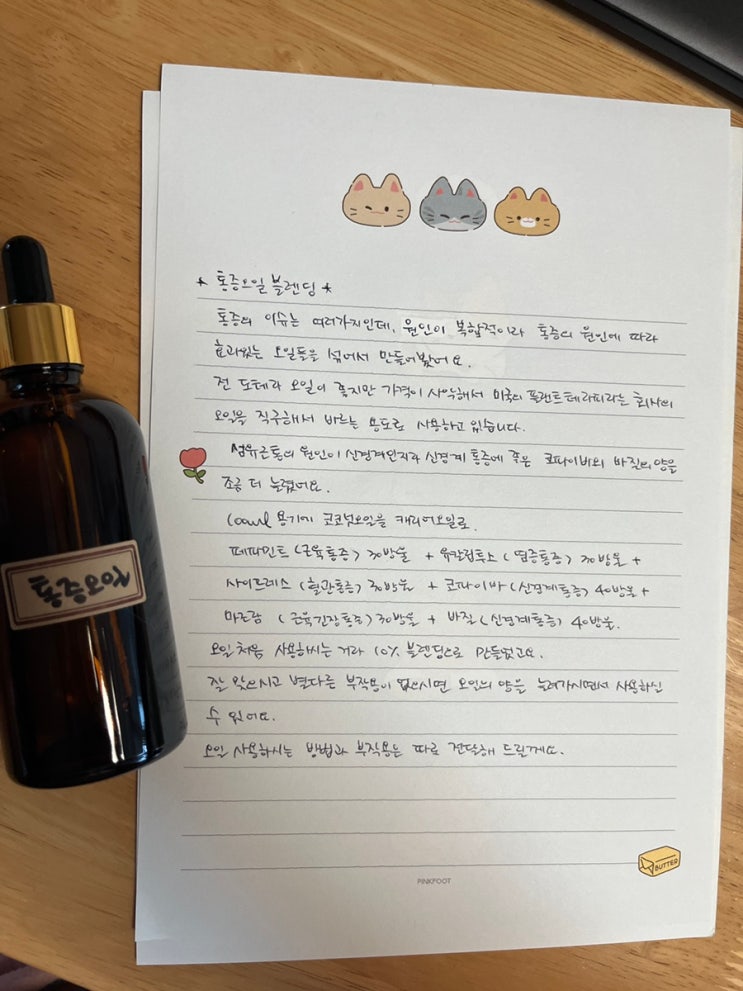 * 통증오일 블렌딩 *
통증의 이슈는 여러가지인데, 원인이 복합적이라 통증의 원인에 따라
효과있는 오일들을 섞어서 만들어봤어요.
전 도테라 오일이 좋지만 가격이 사악해서 미국의 플랜트테라피라는 회사의
오일을 직구해서 바르는 용도로 사용하고 있습니다.
섬유근통의 원인이 신경계인지라 신경계 통증에 좋은 코파이바와 바질의 양을
조금 더 늘렸어요.
100ml 용기에 코코넛오일을 캐리어오일로
페파민트 (근육통증) 30방울 + 유칼립투스 (염증통증) 30방울 +
사이프레스 (혈관통증) 30방울 + 코파이바 (신경계통증) 40방울 +
마조람 (근육긴장통증) 30방울 + 바질 (신경계통증) 40방울.
오일 처음 사용하시는 거라 10% 블렌딩으로 만들었고요.
잘 맞으시고 별다른 부작용이 없으시면 오일의 양을 늘려가시면서 사용하실
수 있어요.
오일 사용하시는 방법과 부작용은 따로 전달해 드릴게요.
통증오일
BUTTER
PINKFOOT